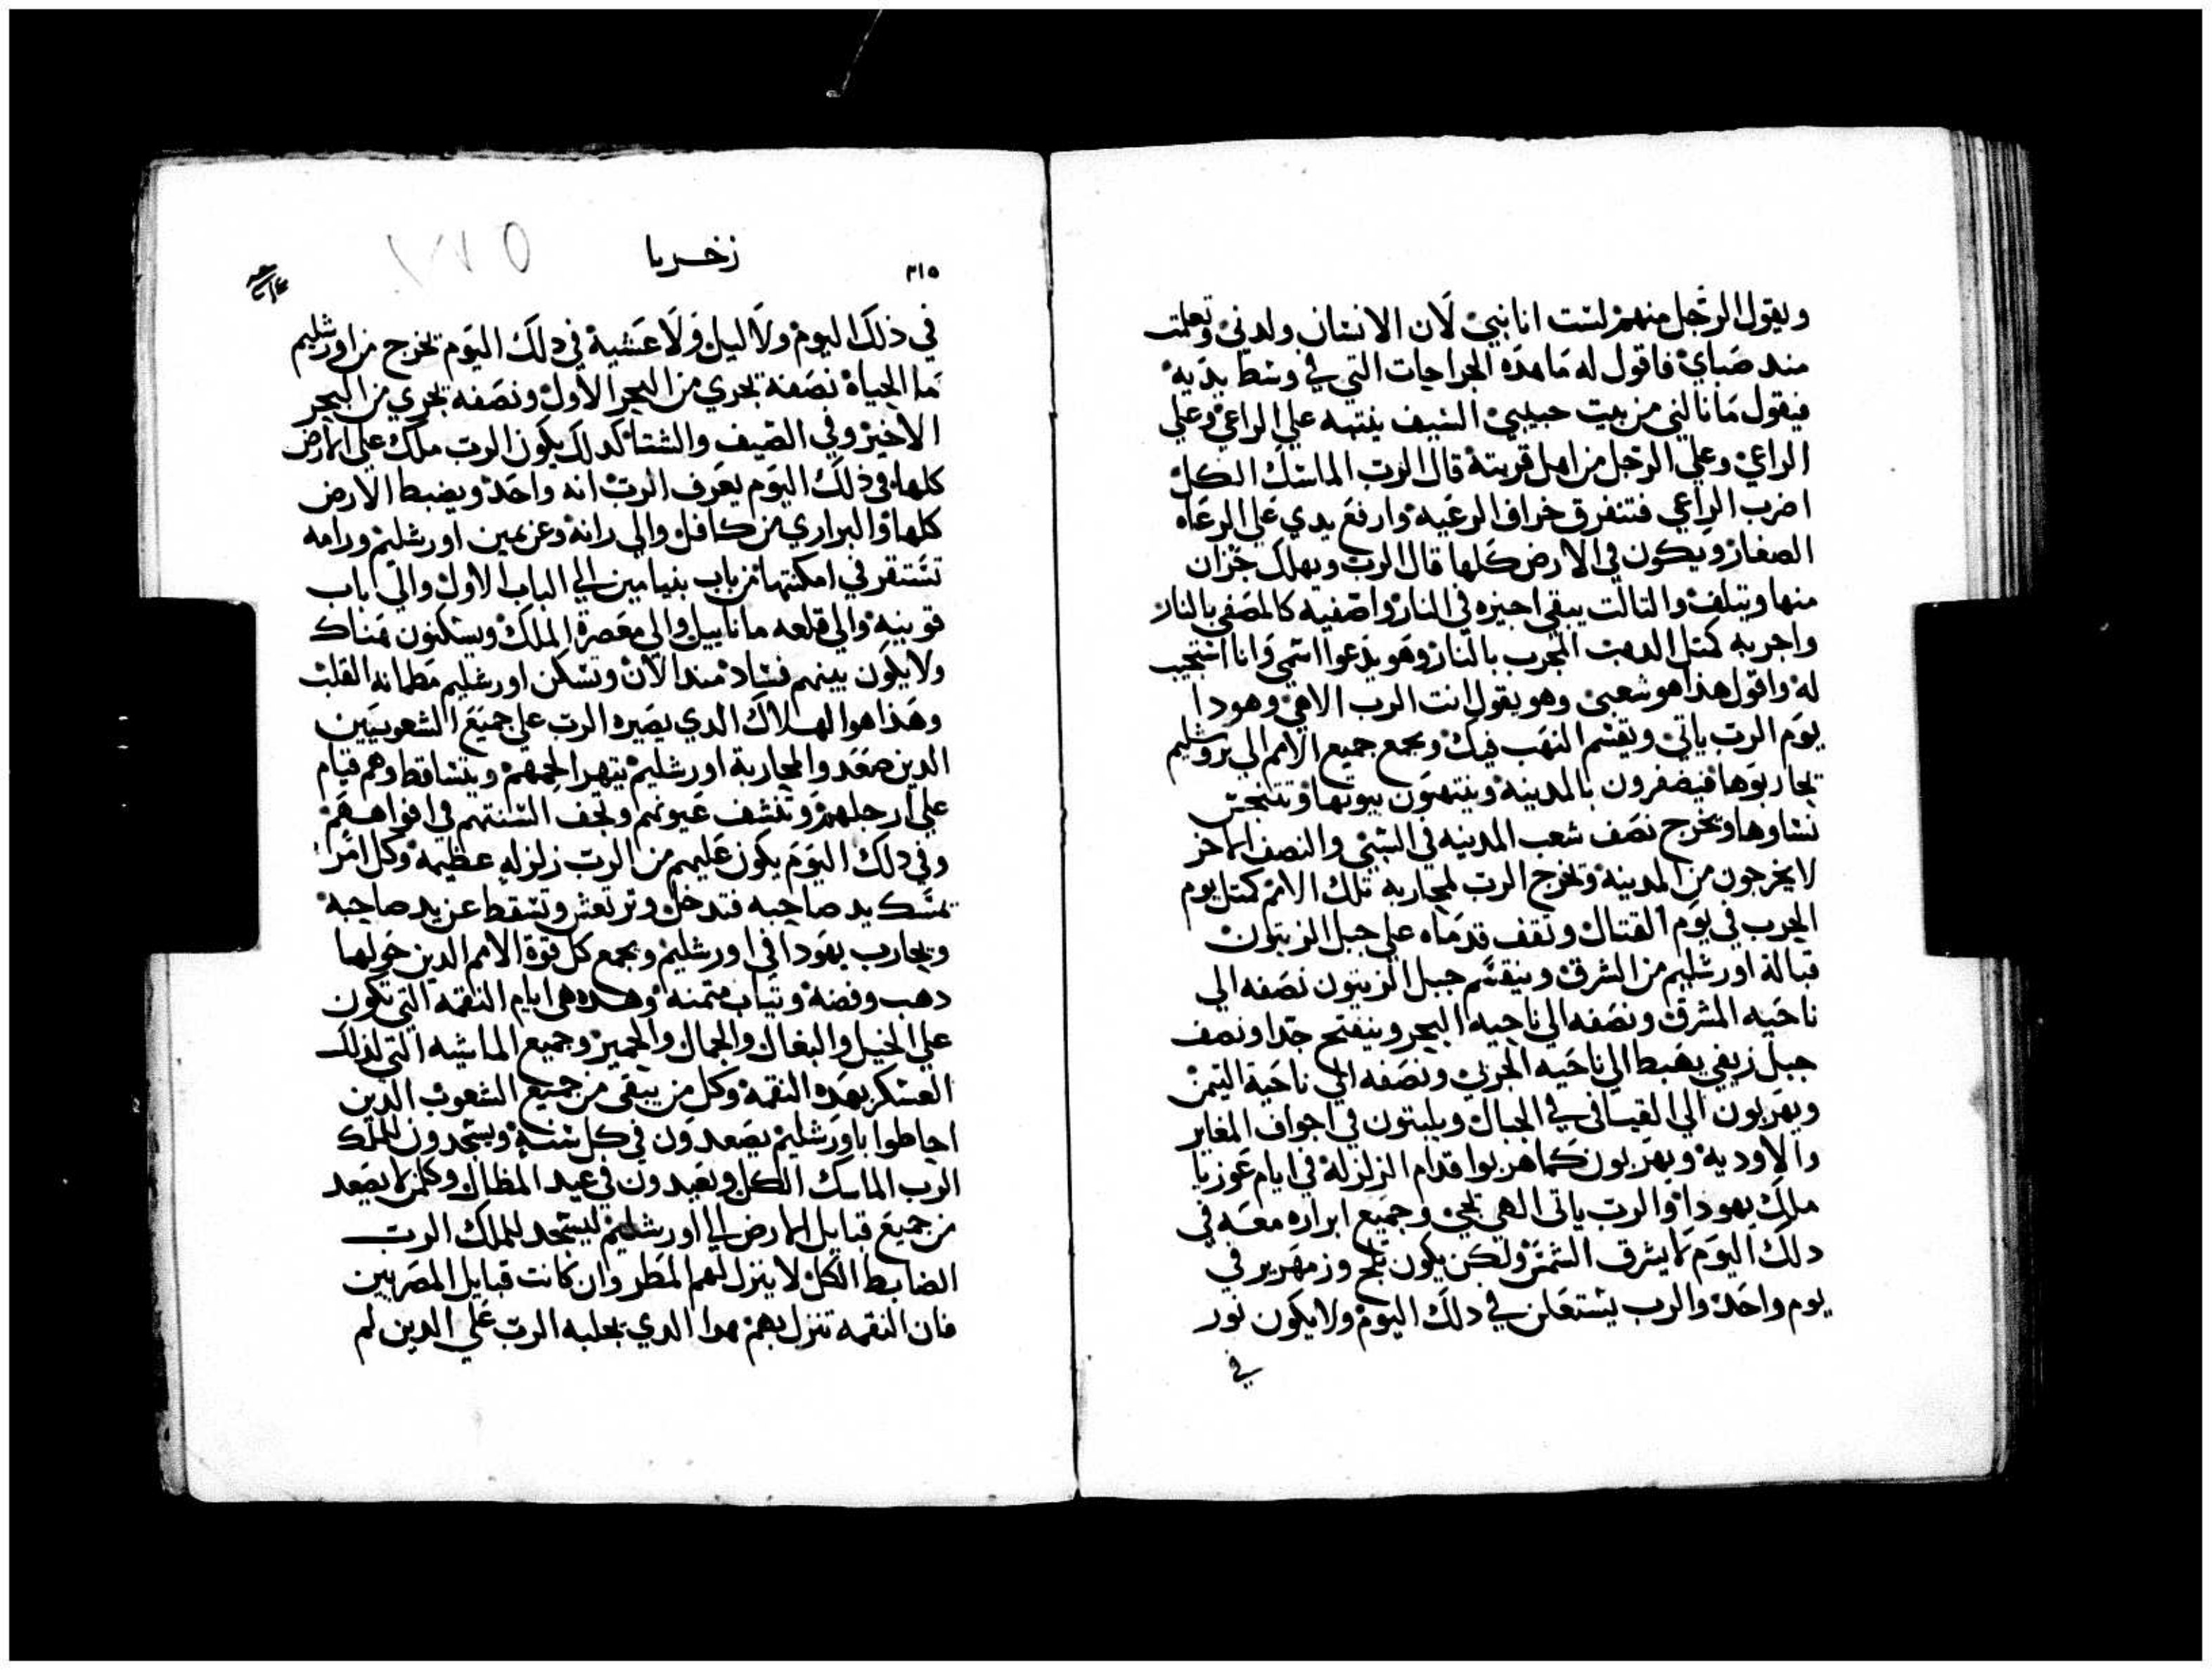 ويقول الرجل منهم لست انا نبي لان الانسان ولدني وتعلمت
مند صباي فاقول له ما هده الجراحات التي في وسط يديه
فيقول ما نالني من بيت حبيبي السيف ينتبه علي الراعي وعلي
الراعي وعلي الرجل من اهل قريته قال الرب الماسك الكل
اضرب الراعي فتتفرق خراف الرعيه وارفع يدي علي الرعاه
الصغار ويكون في الارض كلها قال الرب ويهلك جزان
منها ويتلف والتالت يبقي اجيزه في النار واصفيه كالمصفي بالنار
واجربه كمتل الدهب المجرب بالنار وهو يدعوا اسمي وانا استجيب
له واقول هذا هو شعبي وهو يقول انت الرب الاهي وهودا
يوم الرب ياتي ويقسم النهب فيك ويجمع جميع الامم الي يروشليم
يحاربوها فيضفرون بالمدينه وينتهبون بيوتها وتتنجس
نساوها ويخرج نصف شعب المدينه في السبي والنصف الاخر
لا يخرجون من المدينه ويخرج الرب لمحاربه تلك الامم كمتل يوم
الحرب في يوم القتال وتقف قدماه علي جبل الزيتون
قبالة اورشليم من الشرق وينقسم جبل الزيتون نصفه الي
ناحيه المشرق ونصفه الي ناحيه البحر وينفتح جدا ونصف
جبل زيفي يهبط الي ناحيه الجربي ونصفه الي ناحية التيمن
ويهربون الي القيسافي في الجبال ويلبتون في اجواف المغاير
والاوديه ويهربون كما هربوا قدام الزلزلة في ايام عوزيا
ملك يهودا والرب ياتي الهي يجي وجميع ابراره معه في
دلك اليوم لا يشرق الشمس ولكن يكون تلج وزمهرير في
يوم واحد والرب يستعلن في دلك اليوم ولا يكون نور
في
٣١٥
زخريا
في ذلك اليوم ولا ليل ولا عشية في دلك اليوم تخرج من اورشليم
ما الحياة نصفه تجري من البحر الاول ونصفه تجري من البحر
الاخير وفي الصيف والشتا كدلك يكون الرب ملك علي الارض
كلها في ذلك اليوم يعرف الرب انه واحد ويضبط الارض
كلها والبراري من كافل والي رانه وعن يمين اورشليم ورامه
تستقر في امكنتها من باب بنيامين الي الباب الاول والي باب
قوبنيه والي قلعه ماناييل والي معصرة الملك ويسكنون هناك
ولا يكون بينهم فساد مند الان وتسكن اورشليم مطمانه القلب
وهذا هوا الهلاك الدي يصيره الرب علي جميع الشعوبيين
الدين صعدوا لمحاربة اورشليم يتهرا لحمهم ويتساقط وهم قيام
علي ارجلهم وتنشف عيونهم وتجف السنتهم في افواههم
وفي دلك اليوم يكون عليهم من الرب زلزله عظيمه وكل امر
يمسك يد صاحبه فتدخل وترتعش وتسقط عن يد صاحبه
ويحارب يهودا في اورشليم ويجمع كل قوة الامم الدين حولها
دهب وفضة وتياب متمنه وهده هي ايام النقمه التي تكون
علي الخيل والبغال والجمال والحمير وجميع الماشيه التي لدلك
العسكر بهده النقمة وكل من يبقي من جميع الشعوب الدين
احاطوا باورشليم يصعدون في كل سنة ويسجدون للملك
الرب الماسك الكل ويعيدون في عيد المظال وكلمن لا يصعد
من جميع قبايل الارض الي اورشليم ليسجد للملك الرب
الضابط الكل لا ينزل لهم المطر وان كانت قبايل المصريين
فان النقمه تنزل بهم هدا الدي يجلبه الرب علي الدين لم